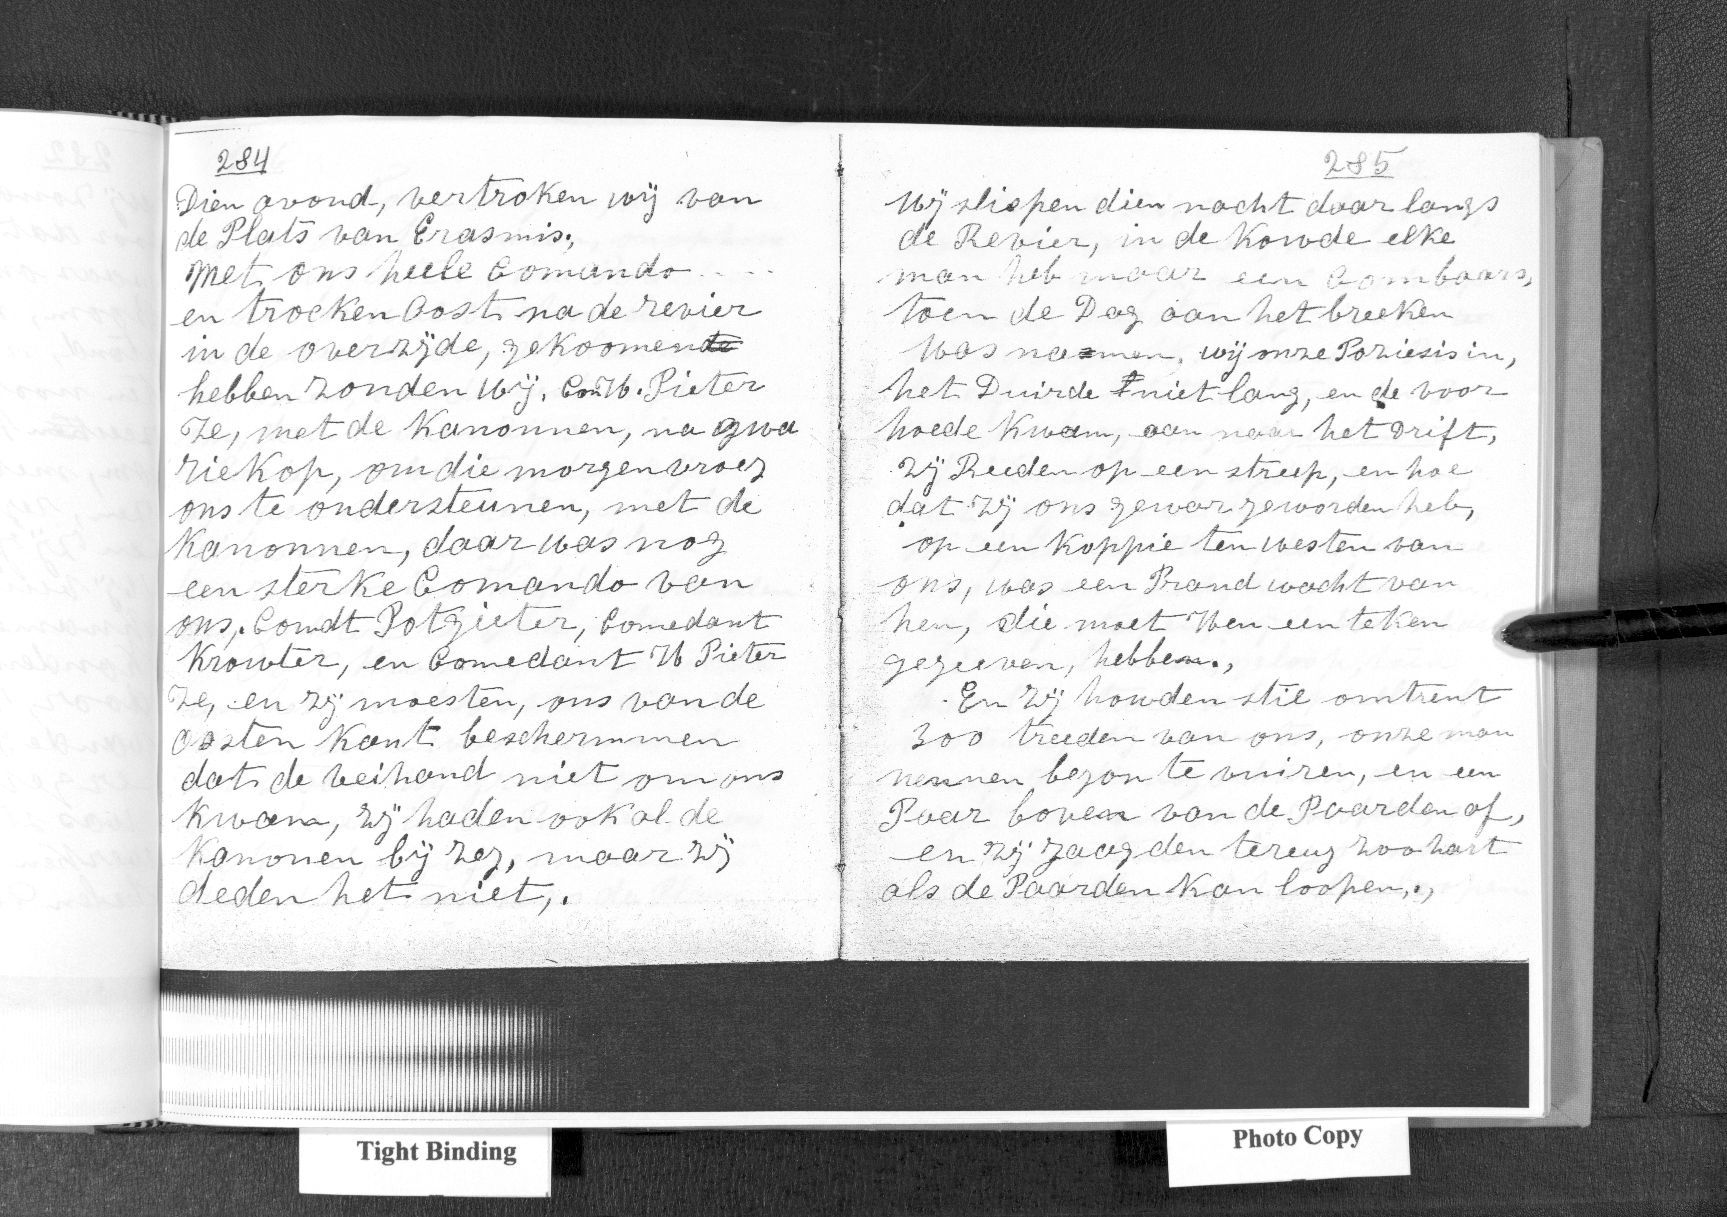 284
Dien avond, vertroken wij van
de Plats van Erasmis.,
Met ons heele Comando ....
en trocken Oost na de revier
in de overzijde, gekoomen te
hebben zonden wij. Com W. Pieter
ze, met de Kanonnen, na gwa
riekop, om die morgen vroeg
ons te ondersteunen, met de
Kanonnen, daar was nog
een sterke Comando van
ons,. Comdt Potgieter, Comedant
Krowter, en Comedant W Pieter
ze, en zij moesten, ons van de
Oosten Kant beschermmen
dat de veihand niet om ons
Kwam, zij haden ook al de
Kanonen bij zeg, maar zij
deden het niet,.
285
Wij sliepen dien nacht daar langs
de Revier, in de Kowde elke
man heb maar een Combaars,
toen de Dag aan het breeken
was namen, wij onze Poziesis in,
het Duirde niet lang, en de voor
hoede Kwam, aan naar het Drift,
zij Reeden op een streep, en hoe
dat zij ons gewar geworden heb,
op een Koppie ten westen van
ons, was een Brand wacht van
hen, die moet Hen een teken
gegeeven, hebben.,
En zij howden stil omtrent
300 treeden van ons, onze man
nennen begon te vuiren, en een
Paar boven van de Paarden af,
en zij jaagden tereug zoo hart
als de Paarden Kan loopen,.,
Tight Binding
Photo Copy